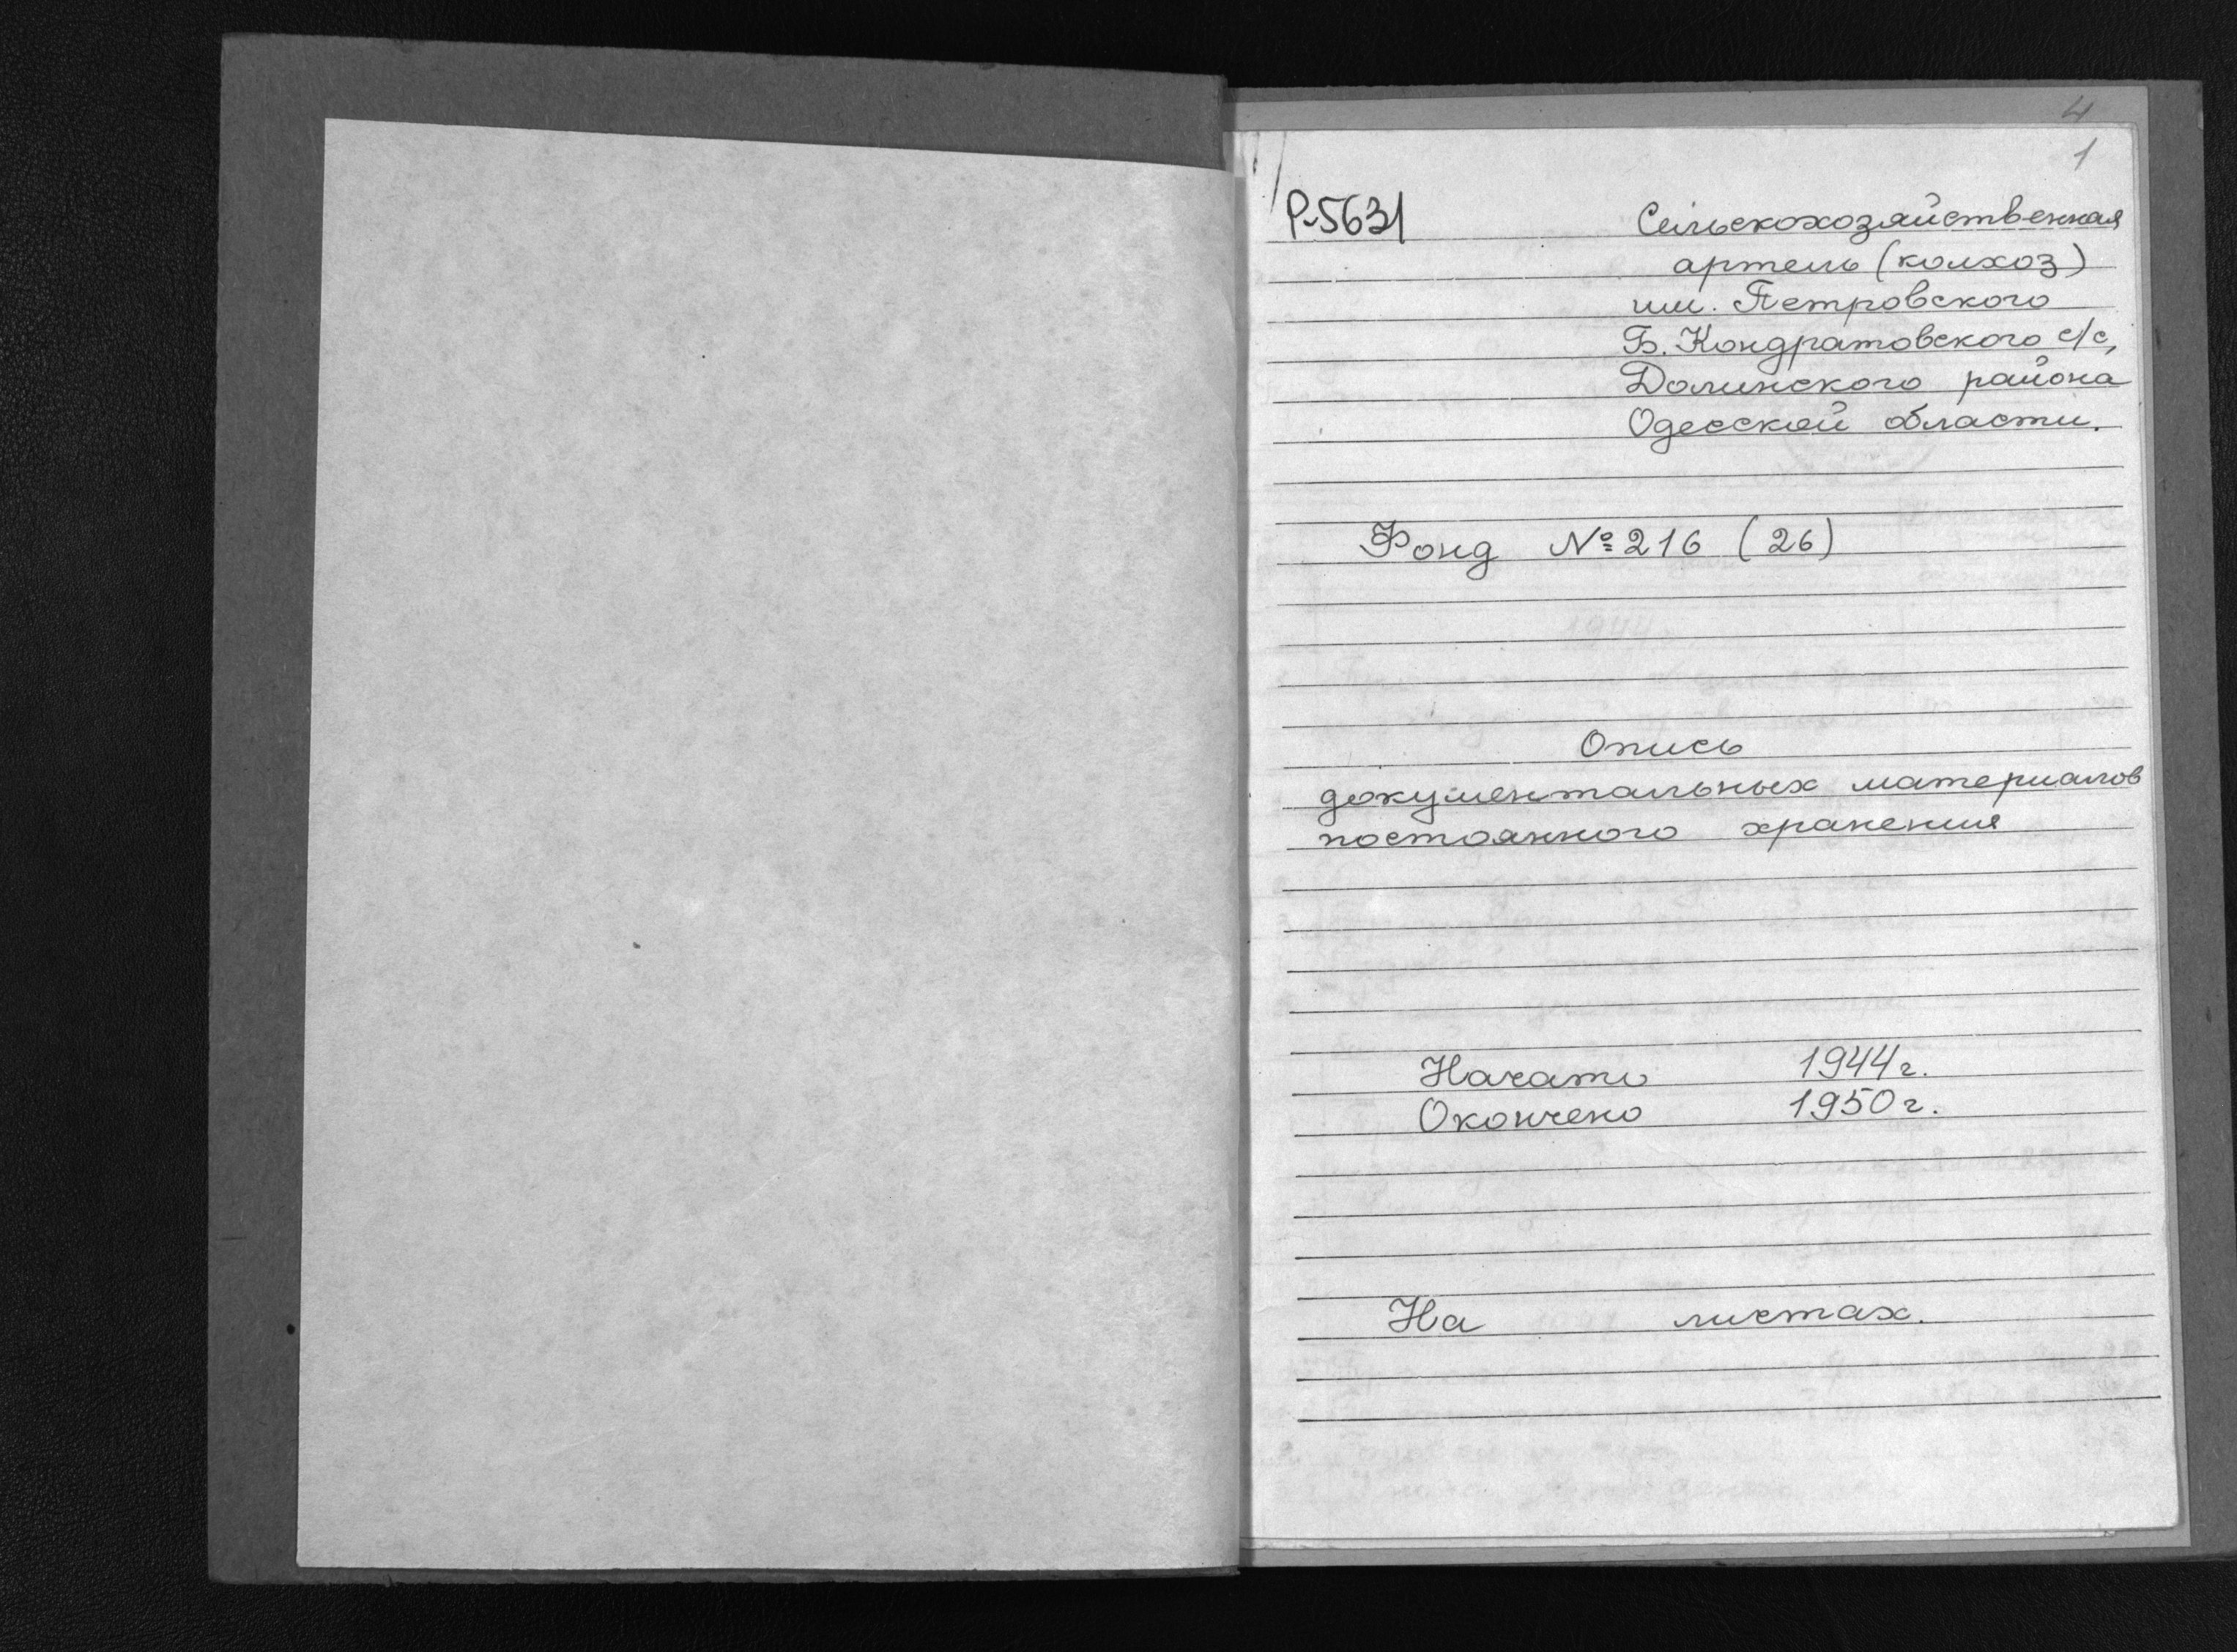 4
1
Р-5631
Сельскохозяйственная
артель (колхоз)
им. Петровского
Б. Кондратовского с/с,
Долинского района
Одесской области.
Фонд № 216 (26)
Опись
документальных материалов
постоянного хранения
Начато 1944 г.
Окончено 1950 г.
На листах.